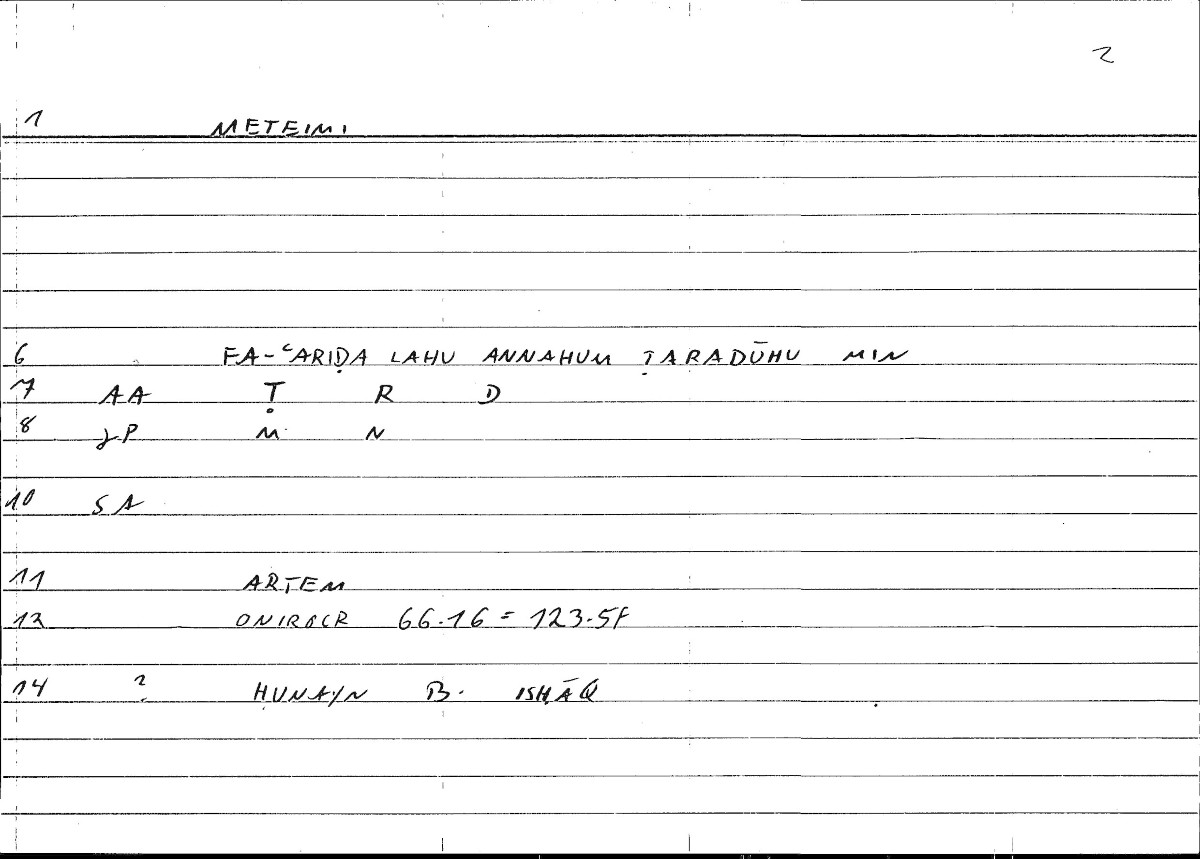 2
1 METEIMI
6 FA-ʿARIḌA LAHU ANNAHUM ṬARADŪHU MIN
7 AA Ṭ R D
8 JP M N
10 SA
11 ARTEM
12 ONIROCR 66.16 = 123.5F
14 ? ḤUNAYN B. ISḤĀQ